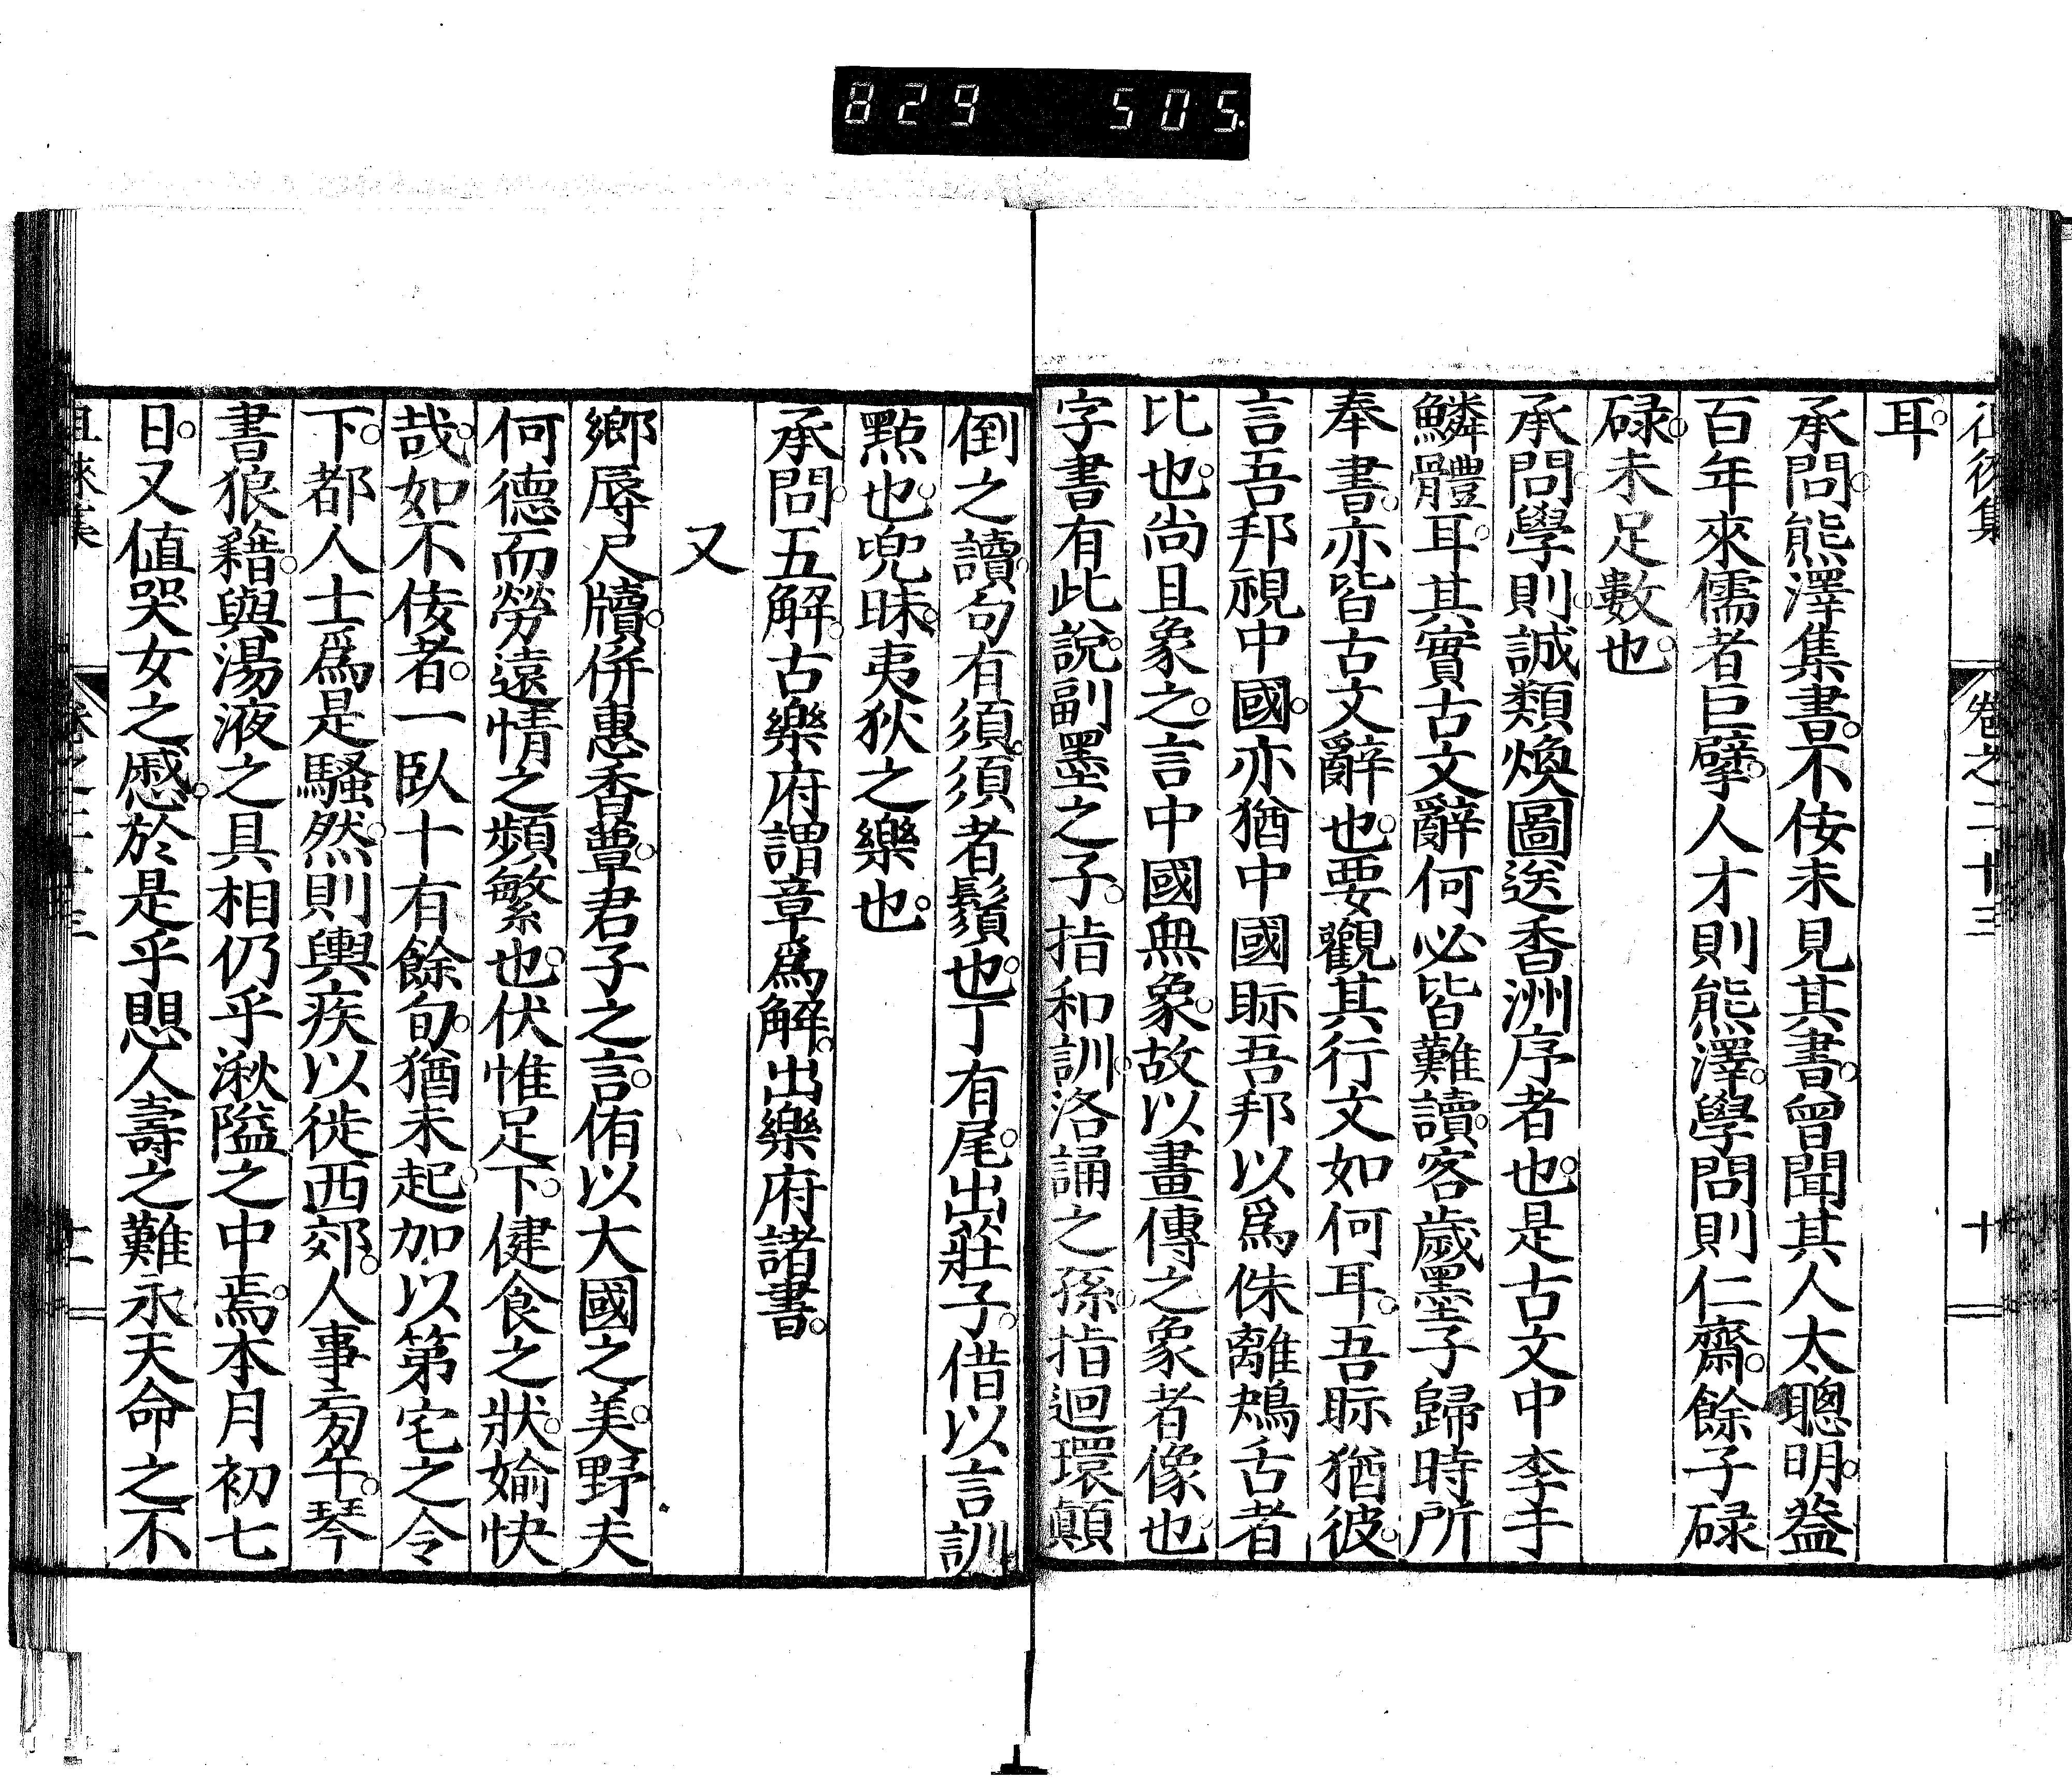 829 505
徂徠集 卷之二十三 十
耳。
承問。熊澤集書。不佞未見其書。曾聞其人太聰明。蓋
百年來儒者巨擘。人才則熊澤。學問則仁齋。餘子碌
碌。未足數也。
承問。學則。誠類煥圖送香洲序者也。是古文中李于
鱗體耳。其實古文辭何必皆難讀。客歲墨子歸時所
奉書。亦皆古文辭也。要觀其行文如何耳。吾眎猶彼。
言吾邦視中國。亦猶中國眎吾邦以爲侏離鴂舌者
比也。尚且象之。言中國無象。故以畫傳之象者像也
字書有此說。副墨之子。指和訓。洛誦之孫。指迴環顛
倒之讀。句有須。須者鬚也。丁有尾。出莊子。借以言訓
點也。兜昧。夷狄之樂也。
承問。五解。古樂府謂章爲解。出樂府諸書。
又
鄉辱尺牘。併惠香蕈。君子之言。侑以大國之美。野夫
何德而勞遠情之頻繁也。伏惟足下。健食之狀。媮快
哉。如不佞者。一臥十有餘旬。猶未起。加以第宅之令
下。都人士爲是騷然。則輿疾以徙西郊。人事旁午。琴
書狼藉。與湯液之具相仍乎湫隘之中焉。本月初七
日。又値哭女之慼。於是乎愳人壽之難永。天命之不
徂徠集 卷之二十三 十一